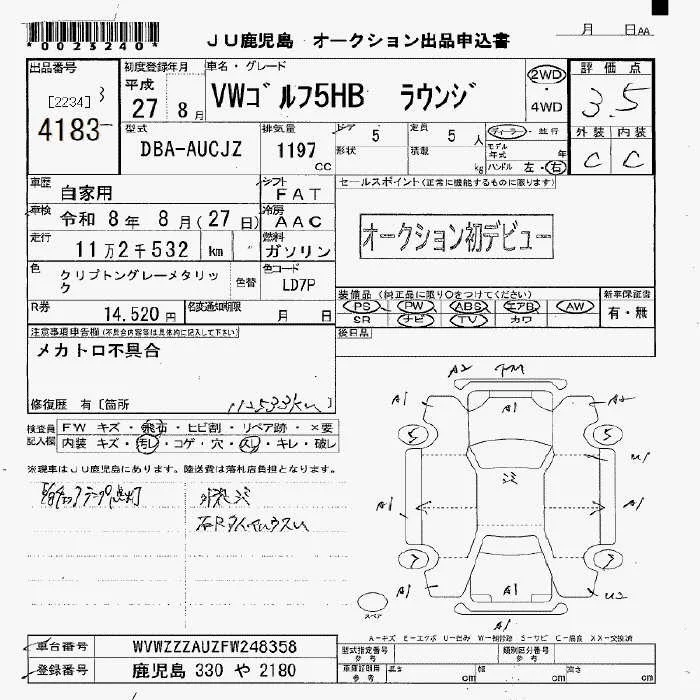 *0023240*
JU鹿児島 オークション出品申込書
月 日 AA
出品番号
[2234] 3
4183
初度登録年月
平成
27 8月
車名・グレード
VWゴルフ5HB ラウンジ
2WD
4WD
評価点
3.5
型式
DBA-AUCJZ
排気量
1197
CC
ドア 5
形状
定員 5人
積載 kg
ディーラー・並行
モデル年式 年
ハンドル 左・右
外装 内装
C C
車歴
自家用
シフト
FAT
セールスポイント(正常に機能するものに限ります)
車検
令和 8年 8月(27日)
冷房
AAC
オークション初デビュー
走行
11万2千532 km
燃料
ガソリン
色
クリプトングレーメタリック
色替
色コード
LD7P
装備品(純正品に限り○をつけてください)
PS PW ABS エアB AW
SR ナビ TV カワ
新車保証書
有・無
R券
14,520円
名変通知期限
月 日
後日品
注意事項申告欄(不具合内容等は具体的に記入して下さい)
メカトロ不具合
修復歴 有〔箇所
112533km
検査員記入欄
FW キズ・飛石・ヒビ割・リペア跡・×要
内装 キズ・汚レ・コゲ・穴・スレ・キレ・破レ
※現車はJU鹿児島にあります。陸送費は落札店負担となります。
A2
A1 A1 A2
5 5
U1
A1 A1
7 7
A1 A1 U2
A1
スペア
A-キズ E-エクボ U-凹み W-補修跡 S-サビ C-腐食 XX-交換済
車台番号 WVWZZZAUZFW248358
登録番号 鹿児島 330 や 2180
型式指定番号 参考
類別区分番号 参考
車庫証明用 参考
長さ cm 幅 cm 高さ cm